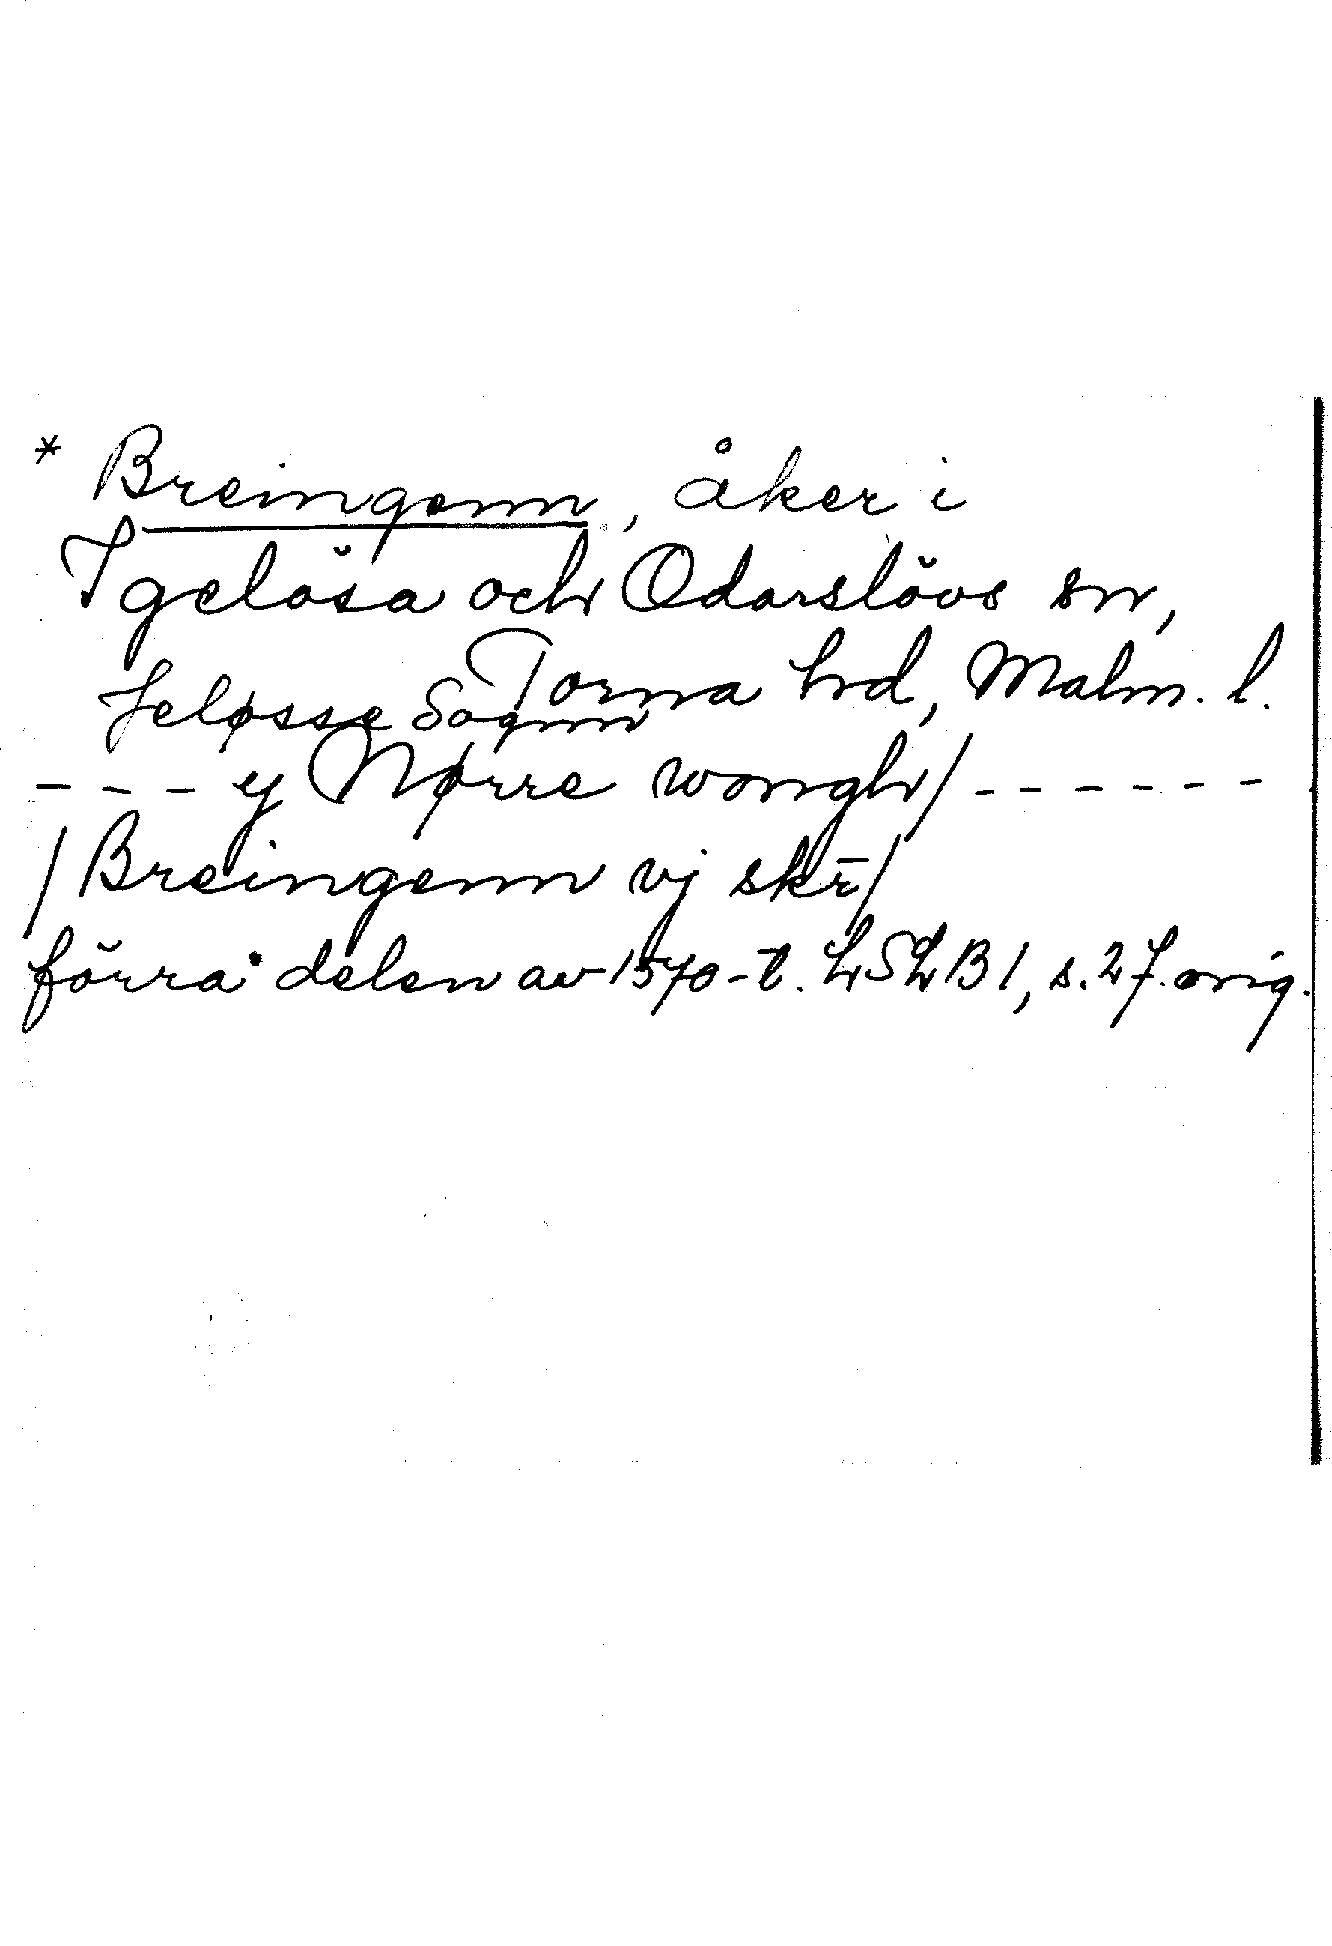 * Breingenn, åker i
Igelösa och Odarslövs snr,
Torna hd, Malm. l.
Jeløsse Sognn
- - - ej Nørre wongh/ - - - - - -
/Breingenn vj skr̄/
förra delen av 1570-t. LSLB1, s.27. orig.